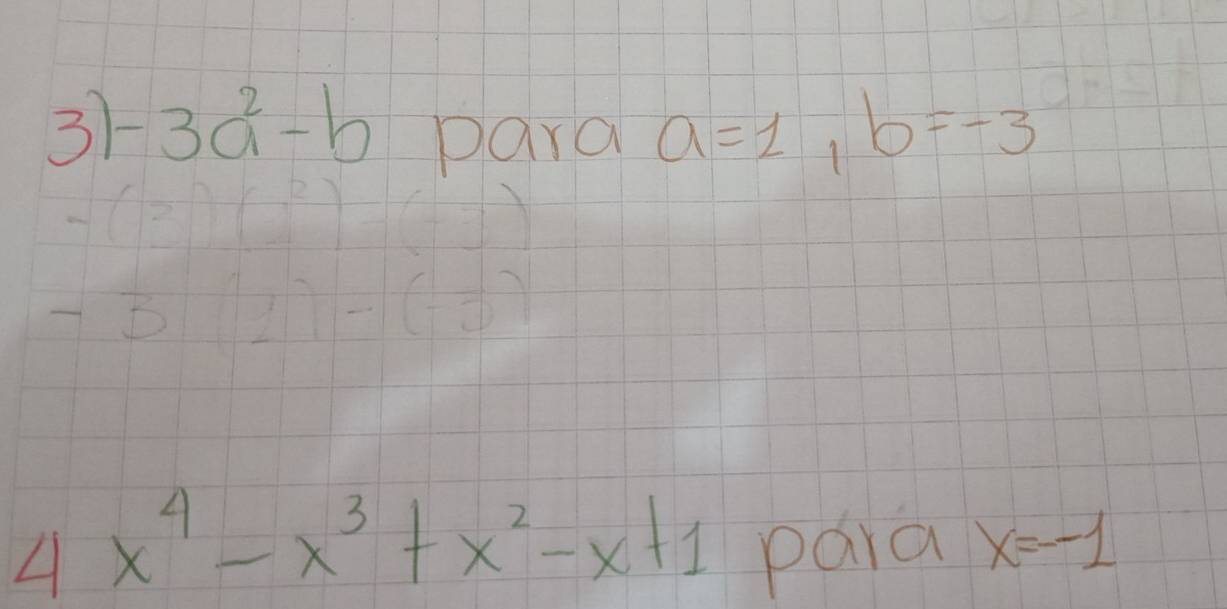 3) -3a² - b para a = 1, b = -3
- (3) ( ²) - (-3)
- 3 (1) - (-3)
4 x⁴ - x³ + x² - x + 1 para x = -1